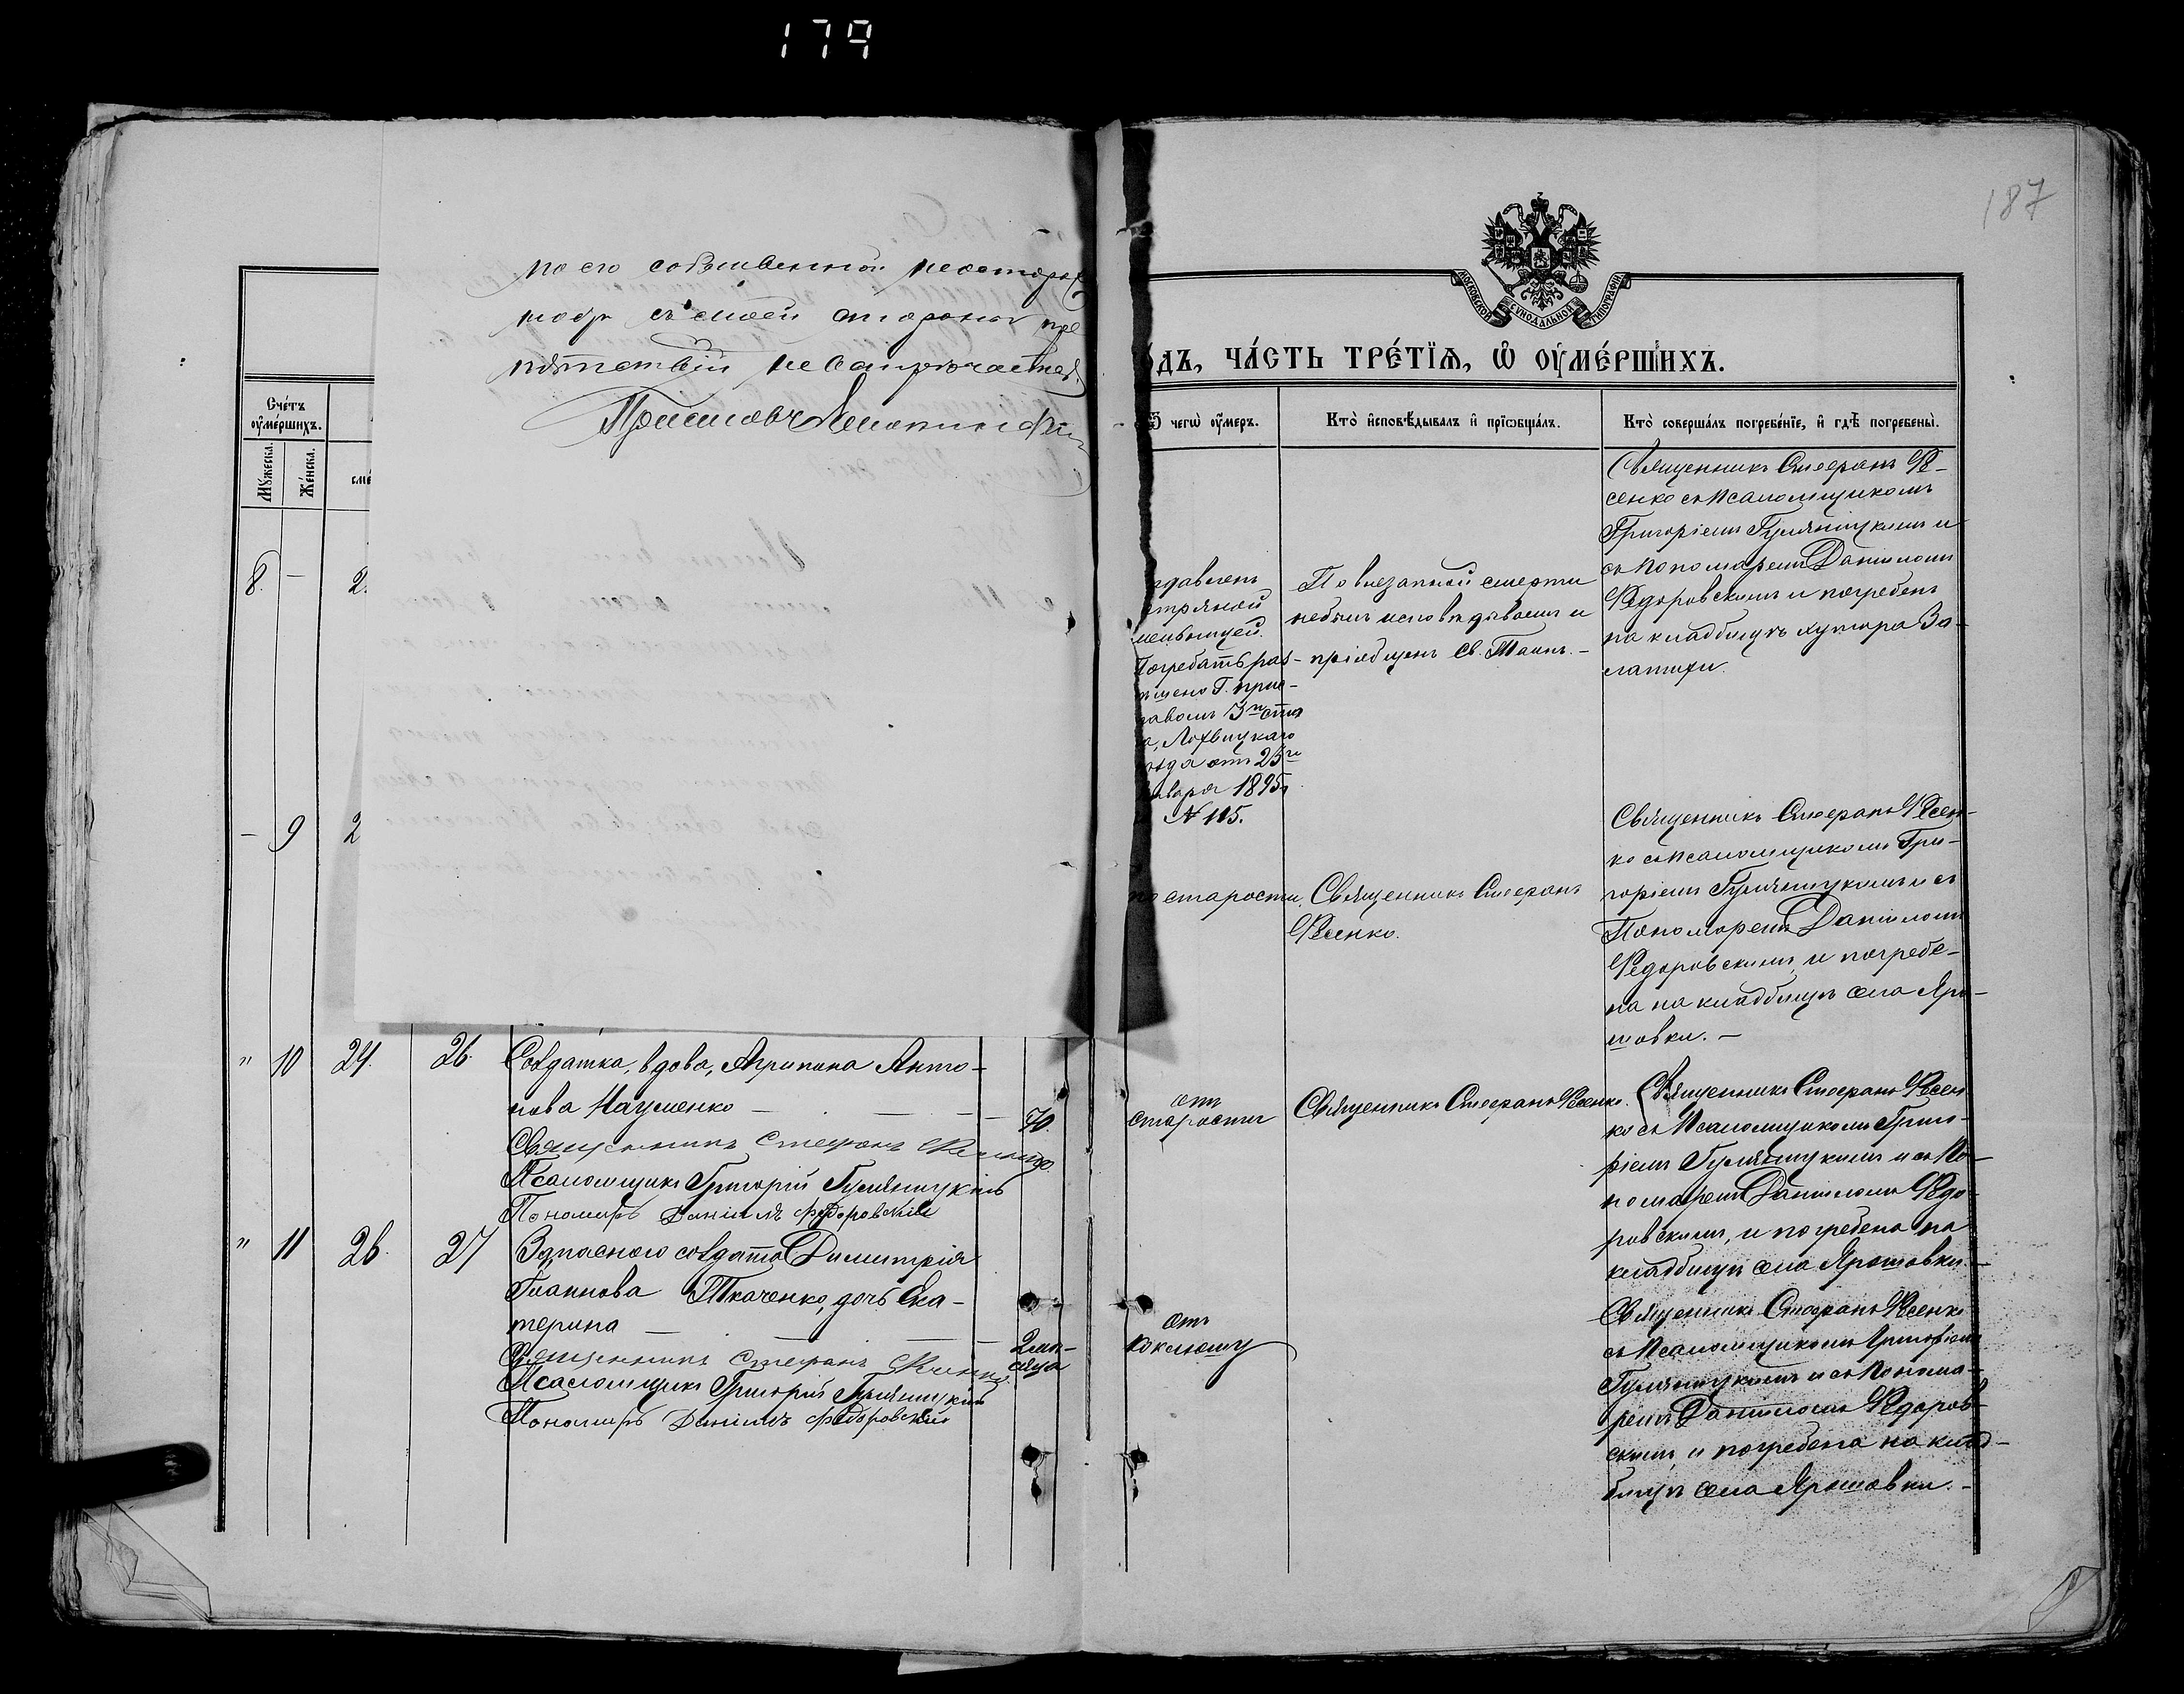 179
187
по его собственной неосторож
ности съ моей стороны пре
пятствій не встрѣчается.
МОСКОВСКОЙ СѴНОДАЛЬНОЙ ТИПОГРАФІИ
ДЪ, ЧА́СТЬ ТРЕ́ТІѦ, Ѡ ОУ҆МЕ́РШИХЪ.
Сче́тъ
оу҆ме́ршихъ.
Мꙋ́жеска.
Же́нска.
сме́
Ѿ чегѡ̀ оу҆́меръ.
Кто̀ и҆сповѣ́дывалъ и҆ прїѡбща́лъ.
Кто̀ соверша́лъ погребе́нїе, и҆ гдѣ̀ погребены̀.
8. — 2
здавленъ
вѣтряной
мельницей.
Погребать раз-
рѣшено Г. прис-
тавомъ 3го ста
на, Лохвицкаго
уѣзда отъ 25го
января 1895 г.
№ 115.
По внезапной смерти
небылъ исповѣдываемъ и
пріобщенъ Св. Таинъ. —
Священникъ Стефанъ Фе-
сенко съ псаломщикомъ
Григоріемъ Гуляницкимъ и
съ пономаремъ Даніиломъ
Федоровскимъ и погребенъ
на кладбищѣ хутора За-
латихи.
— 9 2
по старости.
Священникъ Стефанъ
Фесенко.
Священникъ Стефанъ Фесен-
ко съ псаломщикомъ Гри-
горіемъ Гуляницкимъ и съ
Пономаремъ Даніиломъ
Федоровскимъ, и погребе-
на на кладбищѣ села Яро-
шовки. —
" 10 24. 26.
Солдатка, вдова, Агрипина Анто-
нова Науменко — 70.
Священникъ Стефанъ Фесенко
Псаломщикъ Григорій Гуляницкій
Пономарь Даніилъ Федоровскій
отъ
старости
Священникъ Стефанъ Фесенко.
Священникъ Стефанъ Фесен
ко съ псаломщикомъ Григо-
ріемъ Гуляницкимъ и съ По-
номаремъ Даніиломъ Федо-
ровскимъ, и погребена на
кладбищѣ села Ярошовки. —
" 11 26. 27
Запаснаго солдата Димитрія
Іоаннова Ткаченко, дочь Ека-
терина — 2 мѣ-
сяца
Священникъ Стефанъ Фесенко
Псаломщикъ Григорій Гуляницкій
Пономарь Даніилъ Федоровскій
отъ
коклюшу
Священникъ Стефанъ Фесенко
съ псаломщикомъ Григоріемъ
Гуляницкимъ и съ понома-
ремъ Даніиломъ Федоров-
скимъ, и погребена на клад-
бищѣ села Ярошовки. —